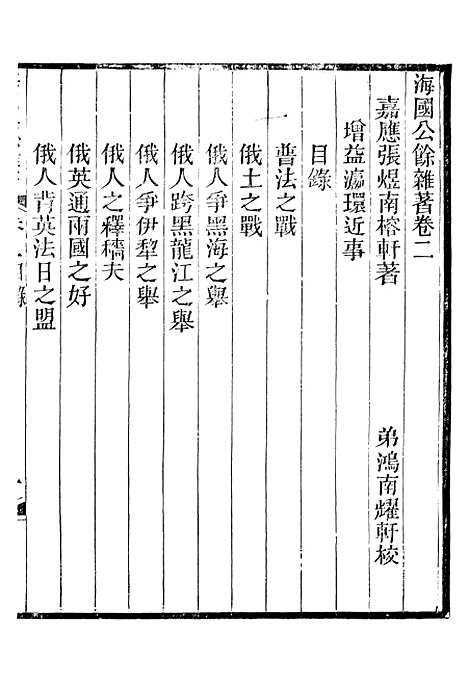 海國公餘雜著卷二
嘉應張煜南榕軒著 弟鴻南燿軒校
增益瀛環近事
目錄
普法之戰
俄土之戰
俄人爭黑海之舉
俄人跨黑龍江之舉
俄人爭伊犁之舉
俄人之釋穡夫
俄英通兩國之好
俄人背英法日之盟